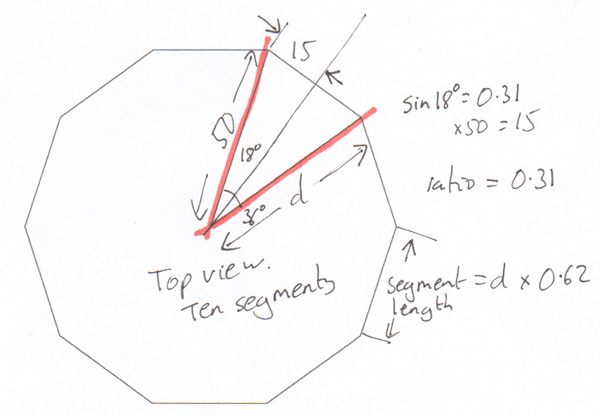 15
50
18°
36°
d
sin 18° = 0.31
x50 = 15
ratio = 0.31
Top view.
Ten segments
segment = d x 0.62
length